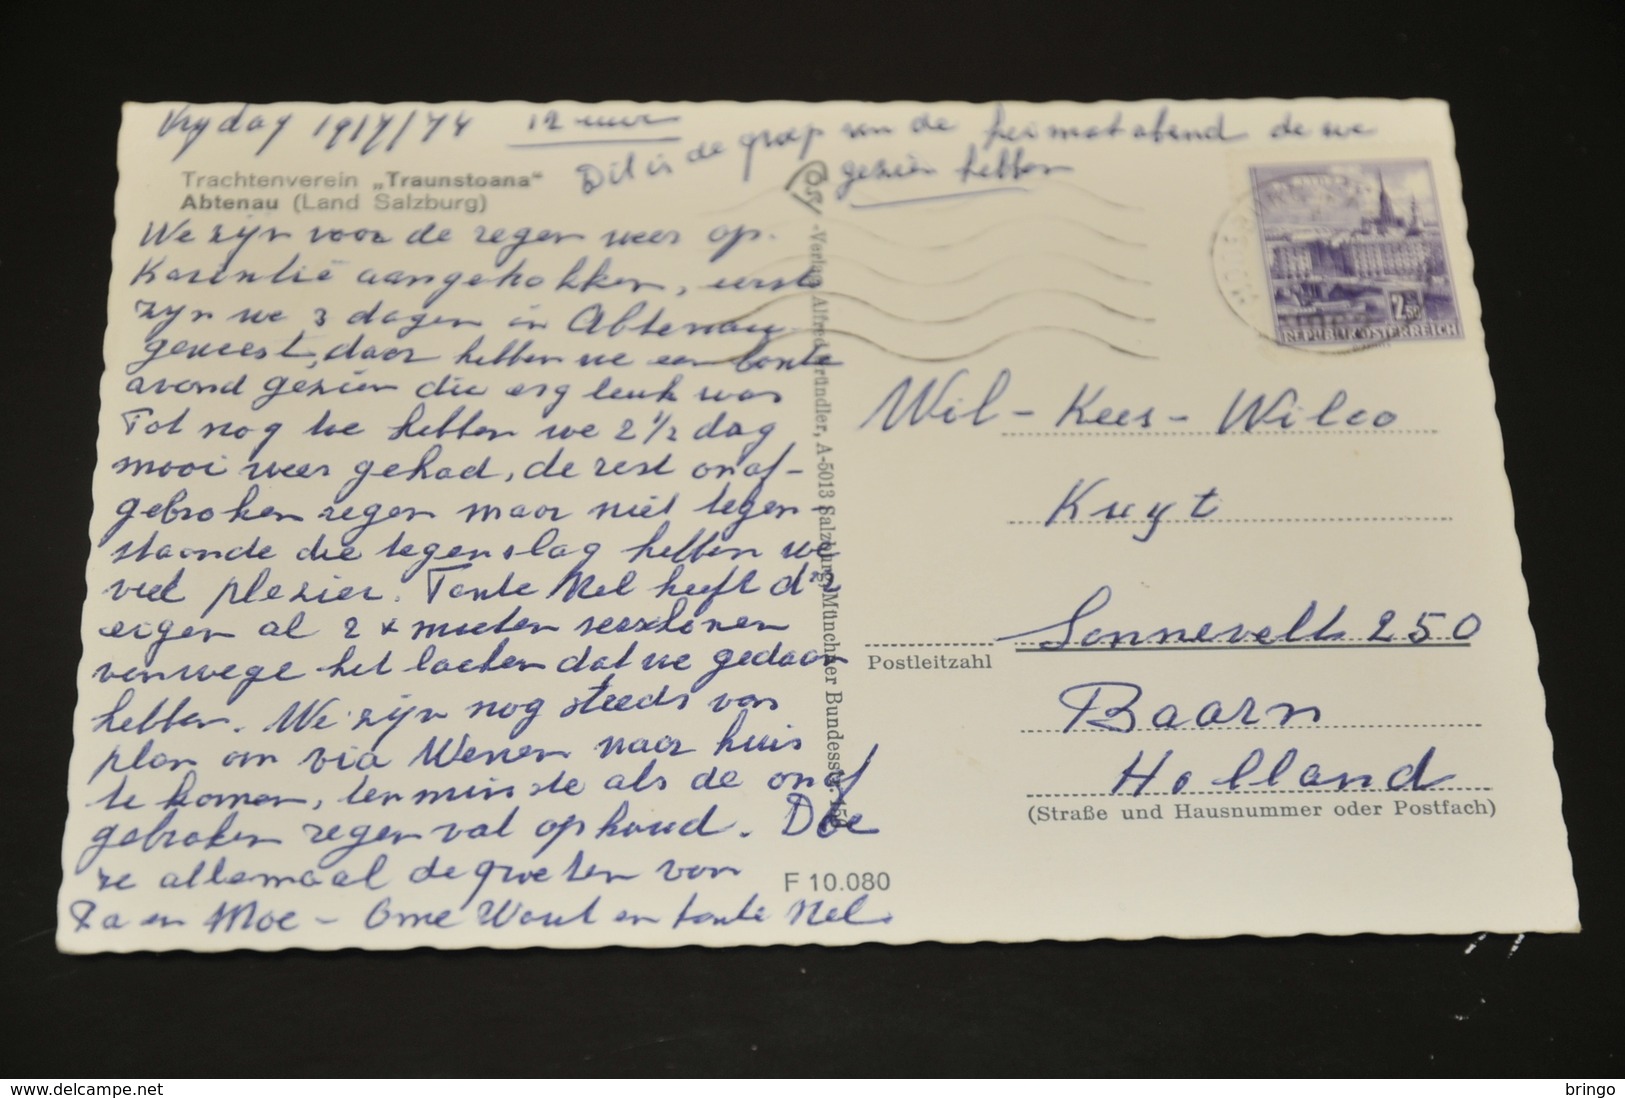 Vrydag 19/7/74 12 uur
Dit is de groep van de heimatabend de we
gezien hebben
Trachtenverein „Traunstoana"
Abtenau (Land Salzburg)
We zijn voor de regen weer op
Karintië aangetrokken, eerst
zijn we 3 dagen in Abtenau
geweest, daar hebben we een bonte
avond gezien die erg leuk was
Tot nog toe hebben we 2 1/2 dag
mooi weer gehad, de rest onaf-
gebroken regen maar niet tegen-
staande die tegenslag hebben we
veel plezier. Tante Nel heeft d'r
eigen al 2 x moeten verschonen
vanwege het lachen dat we gedaan
hebben. We zijn nog steeds van
plan om via Wenen naar huis
te komen, tenminste als de onaf
gebroken regen wat ophoud. Doe
ze allemaal de groeten van
Pa en Moe - Ome Wout en tante Nel.
-Verlag Alfred Gründler, A-5013 Salzburg, Münchner Bundesstr. 156
F 10.080
REPUBLIK ÖSTERREICH
2.50
Wil - Kees - Wilco
Kuyt
Sonnevelt 250
Postleitzahl
Baarn
Holland
(Straße und Hausnummer oder Postfach)
bringo